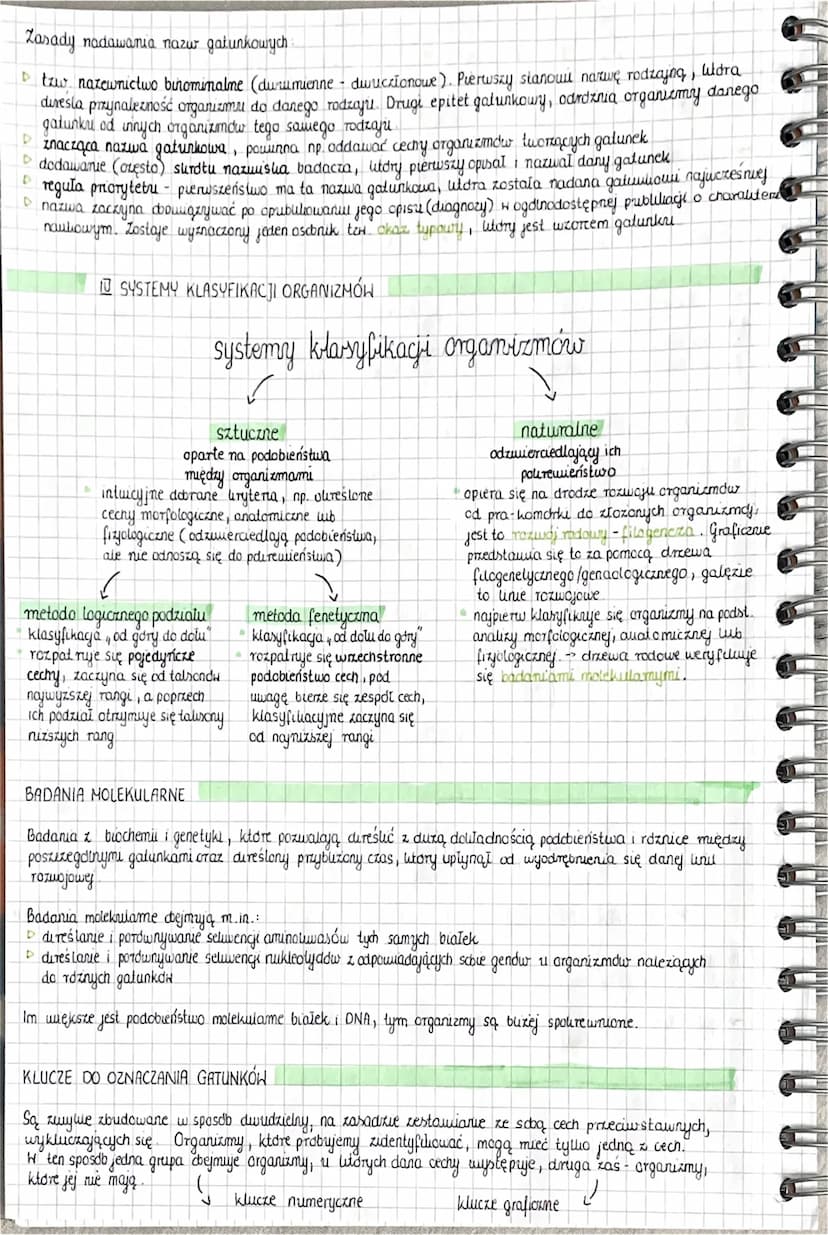 Zasady nadawania nazw gatunkowych
▷ tzw. nazewnictwo binominalne (dwumienne - dwuczłonowe). Pierwszy stanowi nazwę rodzajną, która
określa przynależność organizmu do danego rodzaju. Drugi epitet gatunkowy, odróżnia organizmy danego
gatunku od innych organizmów tego samego rodzaju
▷ znacząca nazwa gatunkowa, powinna np. oddawać cechy organizmów tworzących gatunek
▷ dodawanie (często) skrótu nazwiska badacza, który pierwszy opisał i nazwał dany gatunek
▷ reguła priorytetu - pierwszeństwo ma ta nazwa gatunkowa, która została nadana gatunkowi najwcześniej
▷ nazwa zaczyna obowiązywać po opublikowaniu jego opisu (diagnozy) w ogólnodostępnej publikacji o charakterze
naukowym. Zostaje wyznaczony jeden osobnik tzw. okaz typowy, który jest wzorcem gatunku
IV SYSTEMY KLASYFIKACJI ORGANIZMÓW
systemy klasyfikacji organizmów
sztuczne
oparte na podobieństwa
między organizmami
• intuicyjne dobrane kryteria, np. określone
cechy morfologiczne, anatomiczne lub
fizjologiczne (odzwierciedlają podobieństwa,
ale nie odnoszą się do pokrewieństwa)
naturalne
odzwierciedlający ich
pokrewieństwo
• opiera się na drodze rozwoju organizmów
od pra-komórki do złożonych organizmój,
jest to rozwój rodowy - filogeneza. Graficznie
przedstawia się to za pomocą drzewa
filogenetycznego/genaologicznego, gałęzie
to linie rozwojowe
• najpierw klasyfikuje się organizmy na podst.
analizy morfologicznej, anatomicznej lub
fizjologicznej. → drzewa rodowe weryfikuje
się badaniami molekularnymi.
metoda logicznego podziału
• klasyfikacja „od góry do dołu"
• rozpatruje się pojedyńcze
cechy, zaczyna się od taksonów
najwyższej rangi, a poprzech
ich podział otrzymuje się taksony
niższych rang
metoda fenetyczna
• klasyfikacja „od dołu do góry"
• rozpatruje się wrzechstronne
podobieństwo cech, pod
uwagę bierze się zespół cech,
klasyfikacyjne zaczyna się
od najniższej rangi
BADANIA MOLEKULARNE
Badania z biochemii i genetyki, które pozwalają określić z dużą dokładnością podobieństwa i różnice między
poszczególnymi gatunkami oraz określony przybliżony czas, który upłynął od wyodrębnienia się danej linii
rozwojowej
Badania molekularne obejmują m.in.:
▷ określanie i porównywanie sekwencji aminokwasów tych samych białek
▷ określanie i porównywanie sekwencji nukleotydów z odpowiadających sobie genów u organizmów należących
do różnych gatunków
Im większe jest podobieństwo molekularne białek i DNA, tym organizmy są bliżej spokrewnione.
KLUCZE DO OZNACZANIA GATUNKÓW
Są zwykle zbudowane w sposób dwudzielny, na zasadzie zestawianie ze sobą cech przeciwstawnych,
wykluczających się. Organizmy, które próbujemy zidentyfikować, mogą mieć tylko jedną z cech.
W ten sposób jedna grupa obejmuje organizmy, u których dana cechy występuje, druga zaś - organizmy,
które jej nie mają.
klucze numeryczne
klucze graficzne